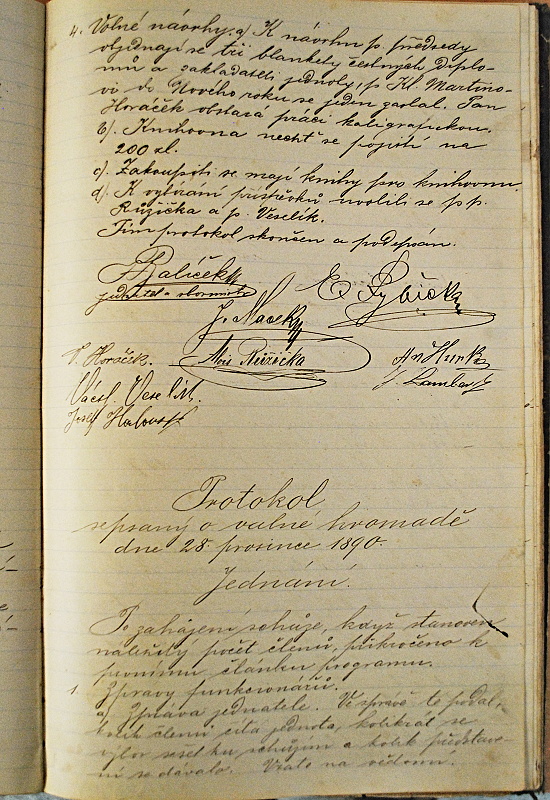 4. Volné návrhy: a) K návrhu p. předsedy
objednají se tři blankety čestných diplo-
mů a zakladateli jednoty, p. Kl. Martino-
vi do Nového roku se jeden zaslal. Pan
Horáček obstará práci kaligrafickou.
b). Knihovna nechť se pojistí na
200 zl.
c). Zakoupiti se mají knihy pro knihovnu.
d). K vybírání příspěvků uvolili se p.p.
Růžička a p. Veselík.
Tím protokol skončen a podepsán.
Palíček
jednatel a sbormistr
E. Rybička
J. Macek
V. Horáček.
Alois Růžička
Ant. Hurk
Vácsl. Veselík.
J. Lambert
Josef
Protokol,
sepsaný o valné hromadě
dne 28. prosince 1890.
Jednání.
Po zahájení schůze, když stanoven
náležitý počet členů, přikročeno k
prvnímu článku programu.
1. Zprávy funkcionářů.
a) Zpráva jednatele. Ve zprávě té podal,
kolik členů čítá jednota, kolikrát se
výbor sešel ku schůzím a kolik představe-
ní se dávalo. Vzato na vědomí.